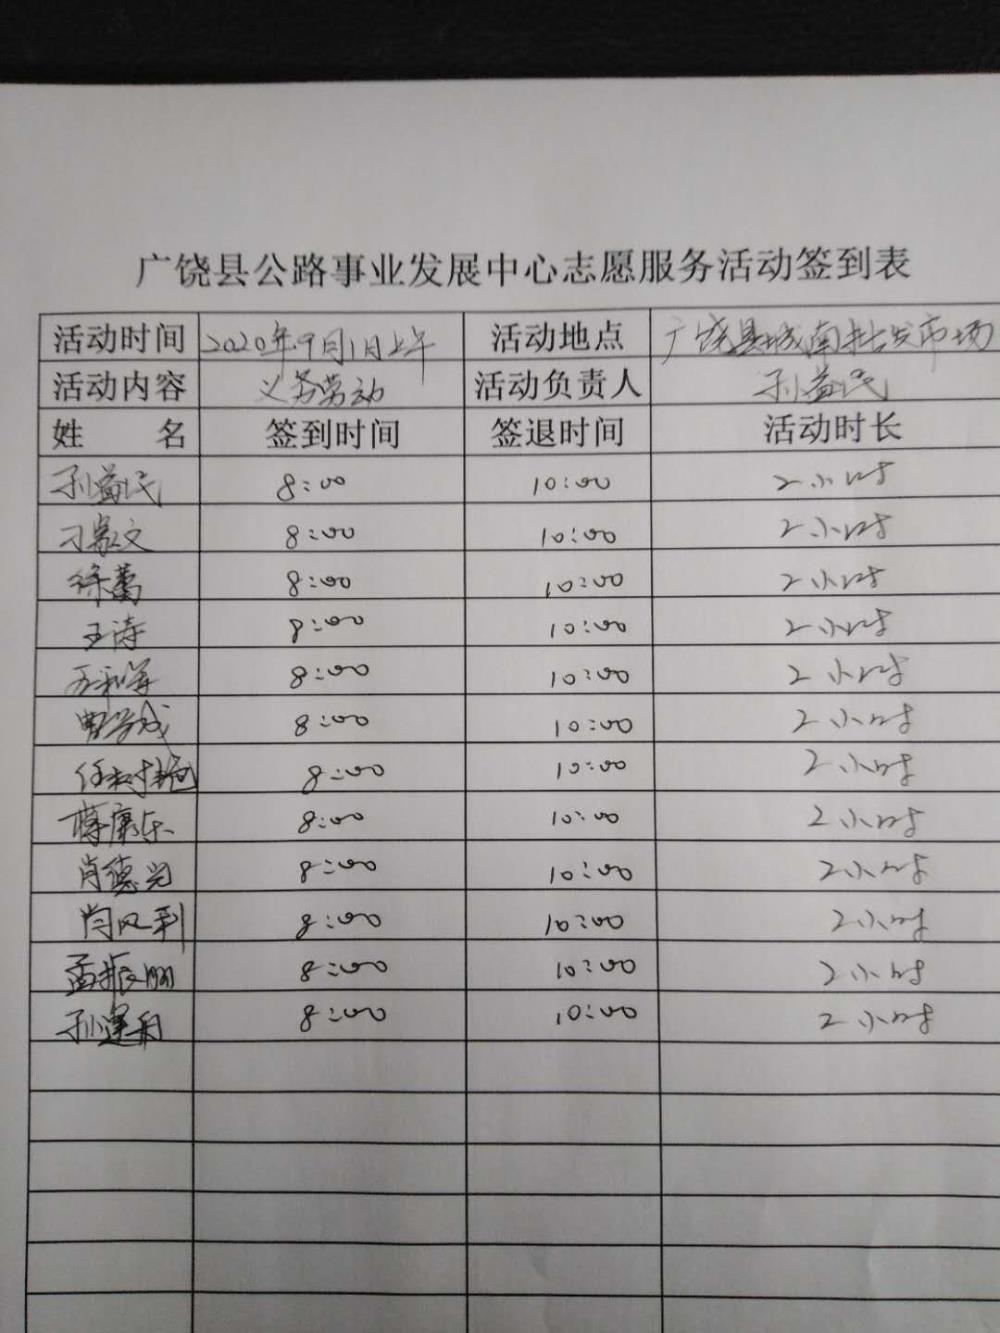 广饶县公路事业发展中心志愿服务活动签到表
活动时间 2020年9月1日上午 活动地点 广饶县城南批发市场
活动内容 义务劳动 活动负责人 孙益民
姓 名 签到时间 签退时间 活动时长
孙益民 8:00 10:00 2小时
刁家文 8:00 10:00 2小时
徐蕾 8:00 10:00 2小时
王诗 8:00 10:00 2小时
8:00 10:00 2小时
8:00 10:00 2小时
8:00 10:00 2小时
8:00 10:00 2小时
肖德兴 8:00 10:00 2小时
8:00 10:00 2小时
孟振鹏 8:00 10:00 2小时
孙运利 8:00 10:00 2小时